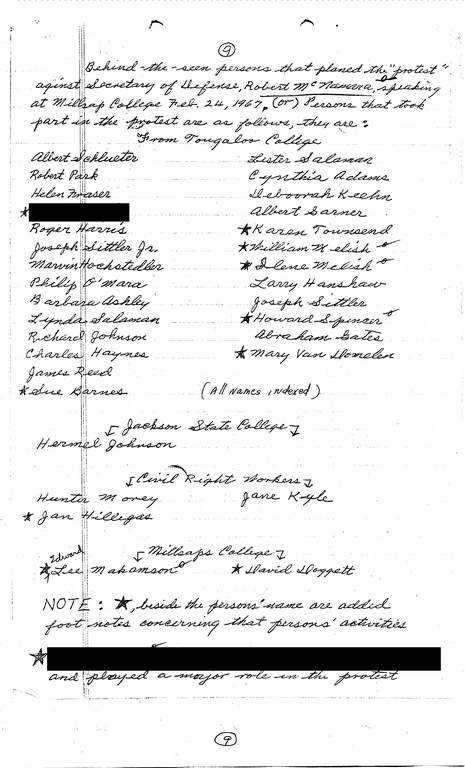 9
Behind-the-seen persons that planed the "protest"
aginst Secretary of Defense, Robert McNamara, speaking
at Millsap College Feb. 24, 1967, (or) Persons that took
part in the protest are as follows, they are:
From Tougaloo College
Albert Schlueter Lester Salaman
Robert Park Cynthia Adams
Helen Fraser Deboorah Keehn
★ Albert Garner
Roger Harris ★ Karen Townsend
Joseph Sittler Jr. ★ William Melish
Marvin Hochstedler ★ Ilene Melish
Philip O'Mara Larry Hanshaw
Barbara Ashley Joseph Sittler
Lynda Salaman ★ Howard Spencer
Richard Johnson Abraham Gates
Charles Haynes ★ Mary Van Donelen
James Reed
★ Sue Barnes (All Names indexed)
Jackson State College
Hermel Johnson
Civil Right Workers
Hunter Morey Jane Kyle
★ Jan Hillegas
Millsaps College
Edward
★ Lee Makamson ★ David Doggett
NOTE: ★, beside the persons' name are added
foot notes concerning that persons' activities
★
and played a major role in the protest
9